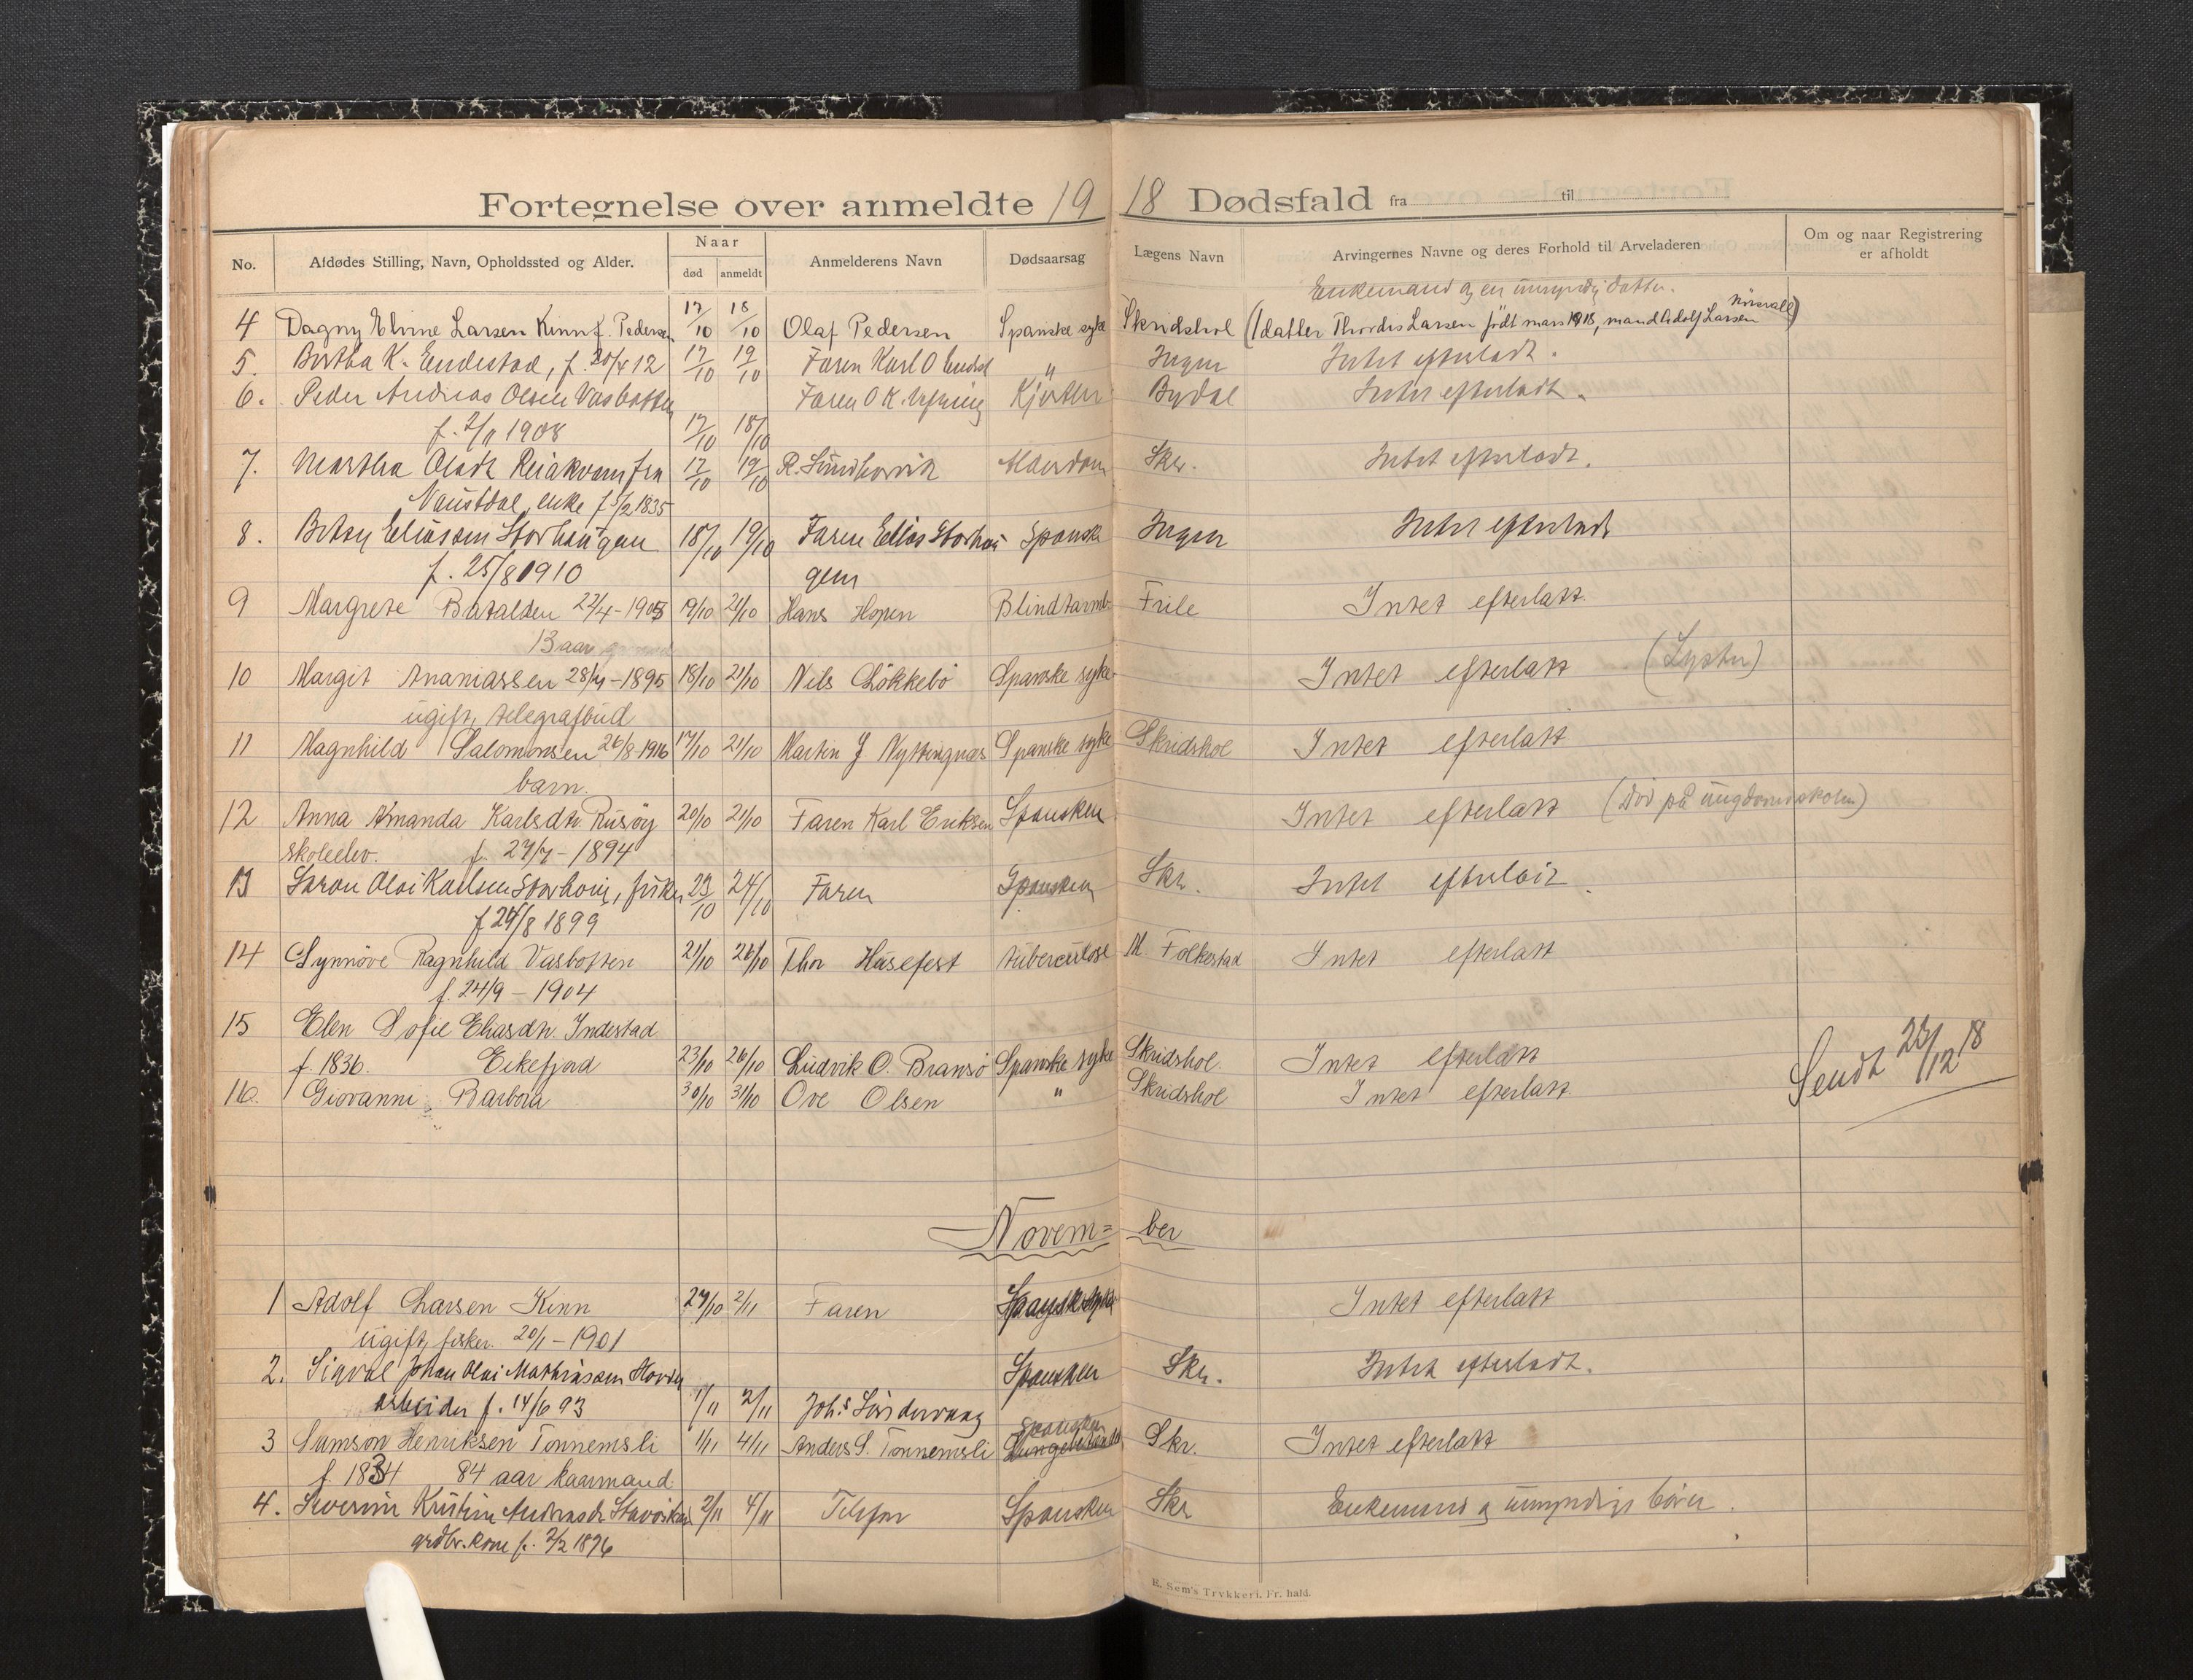 Fortegnelse over anmeldte 1918 Dødsfald fra til
No. Afdødes Stilling, Navn, Opholdssted og Alder. Naar død anmeldt Anmelderens Navn Dødsaarsag Lægens Navn Arvingernes Navne og deres Forhold til Arveladeren Om og naar Registrering er afholdt
Enkemand og en umyndig datter.
4 Dagny Larsen Kinn f. Pedersen 17/10 18/10 Olaf Pedersen Spanske syke Skridshol (1 datter Thordis Larsen født mars 1918, mand Adolf Larsen
5. Bertha K. Endestad, f. 20/4 12 17/10 19/10 Faren Karl O " Ingen Intet efterladt.
6. Peder Andreas Olsen Vasbotten Faren O K. Bydal Intet efterladt.
f. 2/11 1908 17/10 18/10
7. Martha Olads Reiakvam fra 17/10 19/10 R. Alderdom Skr. Intet efterladt.
Naustdal, enke f 1835
8. Betsy Eliassen Storhaugen 18/10 19/10 Faren Elias Storhau Spansk Ingen Intet efterladt
f. 25/8 1910 gen
9 Margrete Batalden 22/4-1905 19/10 21/10 Hans Hopen Blindtarmb. Frile Intet efterlatt.
13 aar
10 Margit Ananiassen 28/4-1895 18/10 21/10 Nils Løkkebø Spanske syke Intet efterlatt
ugift, telegrafbud
11 Magnhild Salomonsen 26/8-1916 17/10 21/10 Martin J Nyttingnæs Spanske syke Skridshol Intet efterlatt
barn.
12 Anna Amanda Karlsdtr. Rusøy 20/10 21/10 Faren Karl Eriksen Spansken Intet efterlatt (død på ungdomsskolen)
skoleelev. f. 27/7-1894
13 Olai Karlsen Storhaug, fisker 23/10 24/10 Faren Spansken Skr. Intet efterlatt.
f 24/8 1899
14 Synnøve Ragnhild Vasbotten 21/10 26/10 Thor Husefest tuberculose M. Folkestad Intet efterlatt
f. 24/9-1904
15 Elen Sofie Eliasdtr. Indestad
f. 1836. Eikefjord 23/10 26/10 Ludvik O. Bransø Spanske syke Skridshol. Intet efterlatt
Sendt 23/12 18
16. Giovanni Barbora 30/10 31/10 Ove Olsen " Skridshol Intet efterlatt.
November
1 Adolf Larsen Kinn 27/10 2/11 Faren Spansk syke Intet efterlatt
ugift, fisker. 20/1-1901
2. Sigval Johan Olai Mathiassen Spansken Skr. Intet efterladt.
arbeider f. 14/6 93 1/11 2/11 Johs
Spansken
3 Samson Henriksen Tonnemsli 1/11 4/11 Anders S. Tonnemsli Skr. Intet efterlatt
f. 1834 84 aar kaarmand.
4. Severine Kristine 2/11 4/11 Telefon Spansken Skr Enkemand og umyndige børn.
grdbr. kone f. 2/2 1876
E. Sem's Trykkeri, Fr. hald.